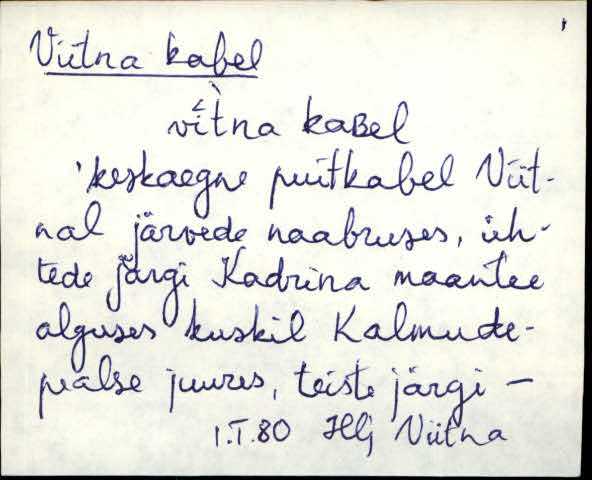 Viitna kabel
vìtna kaʙel
'keskaegne puitkabel Viit-
nal järvede naabruses, üh-
tede järgi Kadrina maantee
alguses kuskil Kalmude-
pealse juures, teiste järgi –
1.I.80 Hlj Viitna